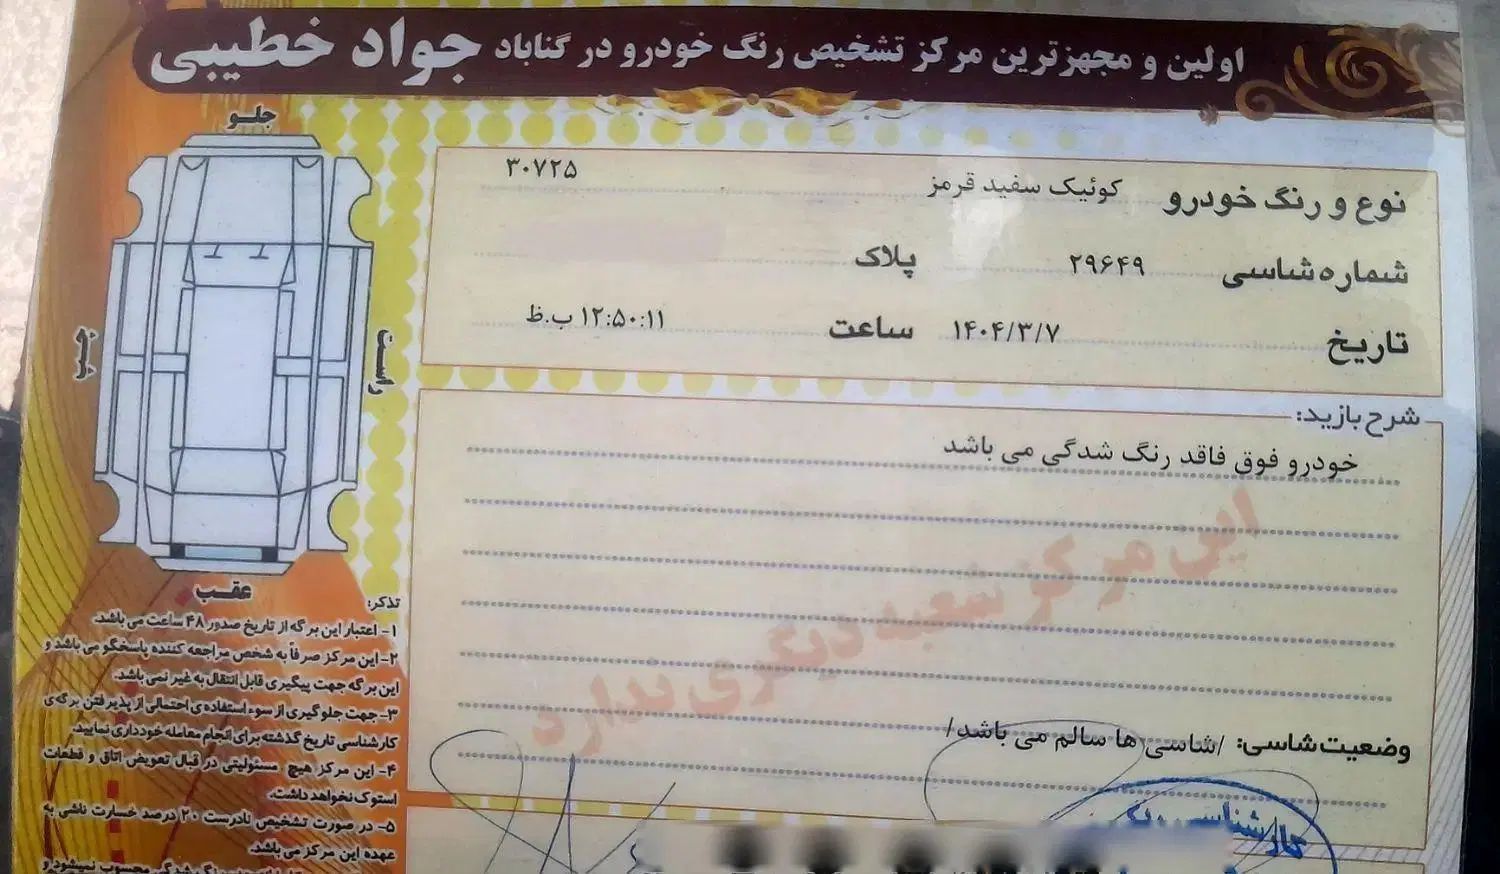 اولین و مجهزترین مرکز تشخیص رنگ خودرو در گناباد جواد خطیبی
جلو
راست
عقب
نوع و رنگ خودرو کوئیک سفید قرمز ۳۰۷۲۵
شماره شاسی ۲۹۶۴۹ پلاک
تاریخ ۱۴۰۴/۳/۷ ساعت ۱۲:۵۰:۱۱ ب.ظ
شرح بازید:
خودرو فوق فاقد رنگ شدگی می باشد
این مرکز شعبه دیگری ندارد
وضعیت شاسی: /شاسی ها سالم می باشد/
کارشناسی رنگ
تذکر:
۱- اعتبار این برگه از تاریخ صدور ۴۸ ساعت می باشد.
۲- این مرکز صرفاً به شخص مراجعه کننده پاسخگو می باشد و
این برگه جهت پیگیری قابل انتقال به غیر نمی باشد.
۳- جهت جلوگیری از سوء استفاده ی احتمالی از پذیرفتن برگه ی
کارشناسی تاریخ گذشته برای انجام معامله خودداری نمایید.
۴- این مرکز هیچ مسئولیتی در قبال تعویض اتاق و قطعات
استوک نخواهد داشت.
۵- در صورت تشخیص نادرست ۲۰ درصد خسارت ناشی به
عهده این مرکز می باشد.